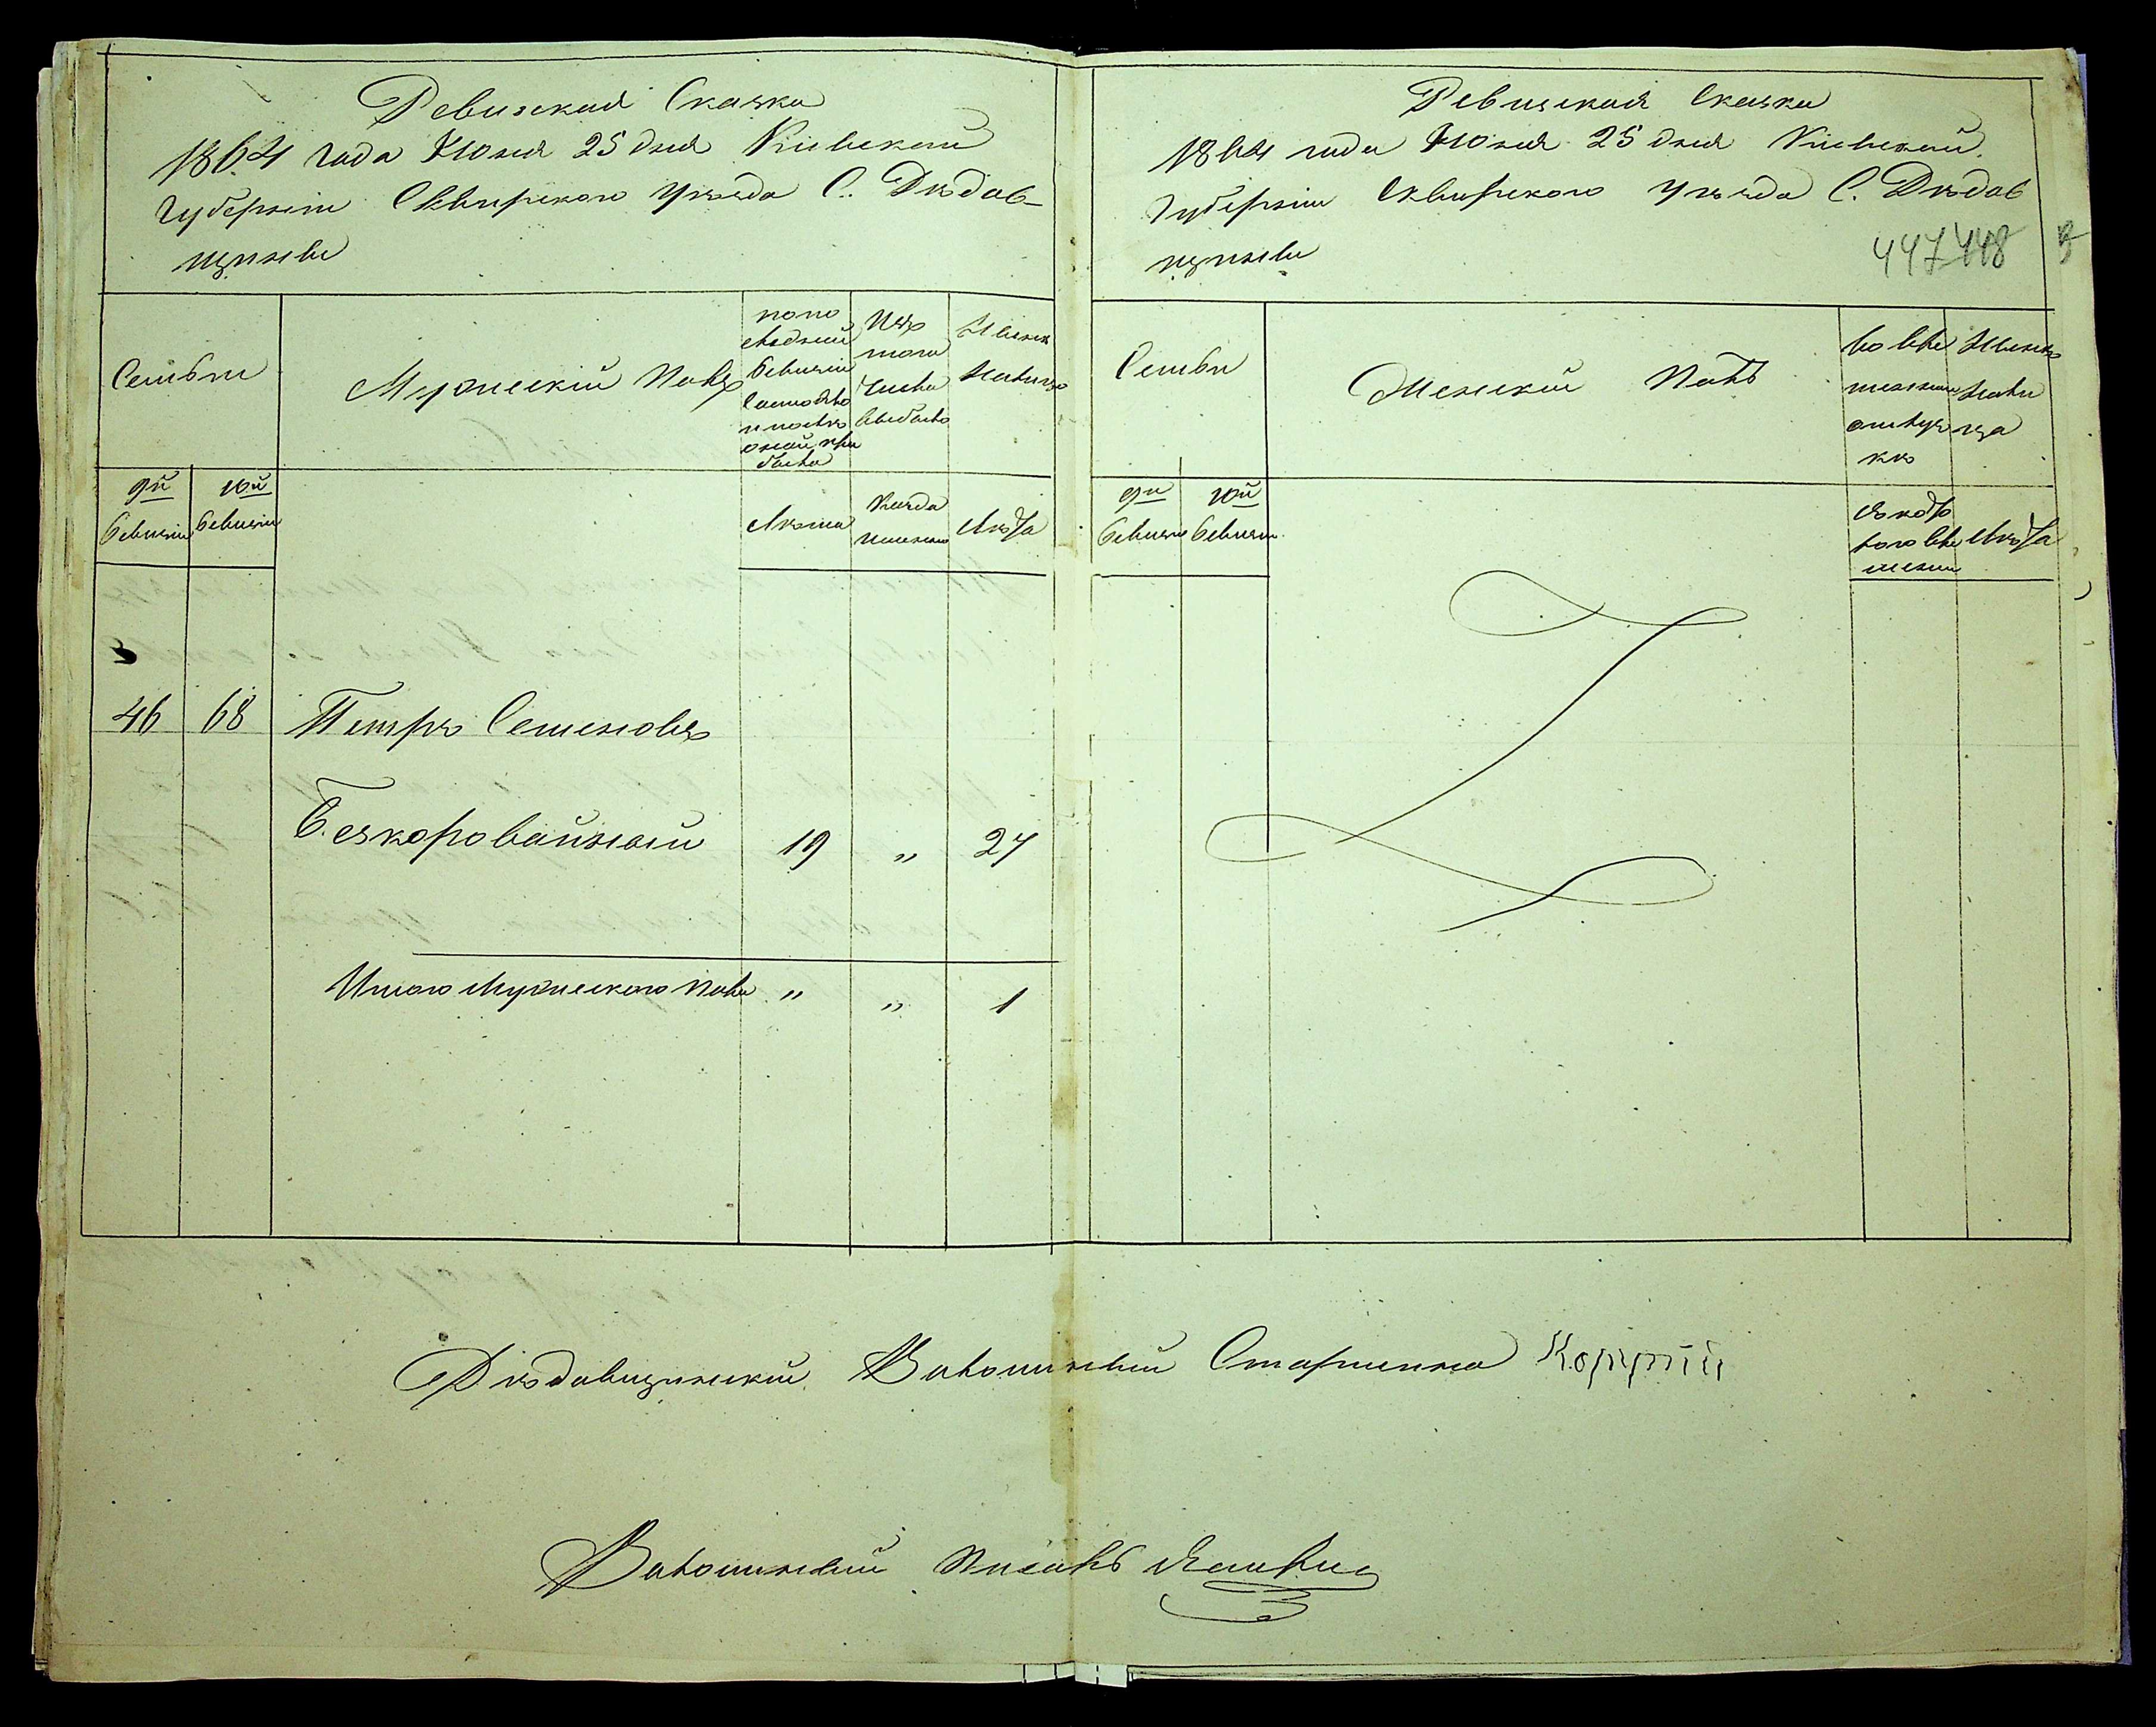 Ревизская Сказка
1864 года Июня 25 дня Киевской
Губерніи Сквирского Уѣзда С. Дѣдов-
щизны
Семьи
Мужескій Полъ
по по
слѣдней
ревизіи
состояло
и послѣ
оной при
было
Изъ
того
числа
выбыло
Нынѣ
на лицо
9й
ревизіи
10й
ревизіи
Лѣта
Когда
именно
Лѣта
46 68 Петръ Семеновъ
Безкоровайный 19 „ 24
Итого Мужеского Пола „ „ 1
Ревизская Сказка
1864 года Июня 25 дня Киевской
Губерніи Сквирского Уѣзда С. Дѣдов
щизны
447 448
Семьи
Женскій Полъ
Во вре
менной
отлуч
кѣ
Нынѣ
на ли
цо
9й
ревизіи
10й
ревизіи
Съ кото
рого вре
мени
Лѣта
Дѣдовщинскій Волостный Старшина
Волостный Писарь